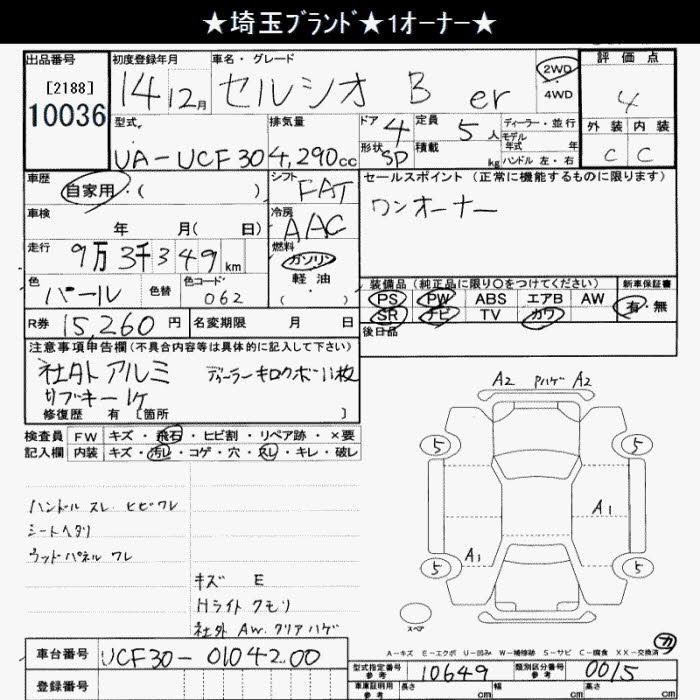 ★埼玉ﾌﾞﾗﾝﾄﾞ★1ｵｰﾅｰ★
出品番号
[2188]
10036
初度登録年月
14 12月
車名・グレード
セルシオ B er
2WD
4WD
評価点
4
外装 内装
C C
型式
UA-UCF30
排気量
4,290cc
ドア 4
形状 SD
定員 5人
積載 kg
ディーラー・並行
モデル
年式 年
ハンドル 左・右
車歴
自家用・( )
シフト
FAT
セールスポイント (正常に機能するものに限ります)
ワンオーナー
車検
年 月( 日)
冷房
AAC
走行
9万3千349km
燃料
ガソリン
軽油
( )
色
パール
色替
色コード
062
装備品(純正品に限り○をつけてください)
新車保証書
PS PW ABS エアB AW
SR ナビ TV カワ
有・無
後日品
R券 15,260円
名変期限 月 日
注意事項申告欄(不具合内容等は具体的に記入して下さい)
社外アルミ ディーラーキロクボ11枚
サブキー1ケ
修復歴 有[箇所 ]
検査員 FW キズ・飛石・ヒビ割・リペア跡・×要
記入欄 内装 キズ・汚レ・コゲ・穴・スレ・キレ・破レ
ハンドル スレ ヒビワレ
シートヘタリ
ウッドパネル ワレ
キズ E
Hライト クモリ
社外 AW. クリアハゲ
A2 Pハゲ A2
5 5
A1
A1
5 5
スペア
カ
A-キズ E-エクボ U-凹み W-補修跡 S-サビ C-腐食 XX-交換済
車台番号
UCF30-0104200
登録番号
型式指定番号
参考
10649
類別区分番号
参考
0015
車庫証明用
参考
長さ cm 幅 cm 高さ cm